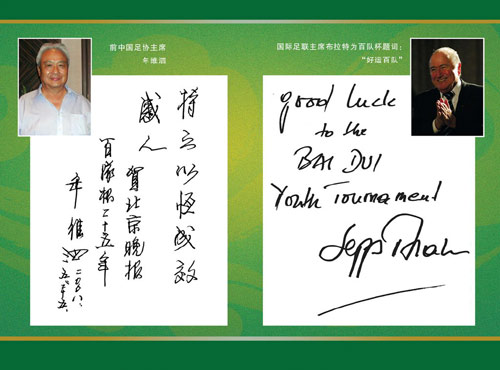 前中国足协主席
年维泗
持之以恒成效
感人 贺北京晚报
百隊杯二十五年
年维泗
二〇〇八、
国际足联主席布拉特为百队杯题词：
“好运百队”
good luck
to the
BAI DUI
Youth Tournament